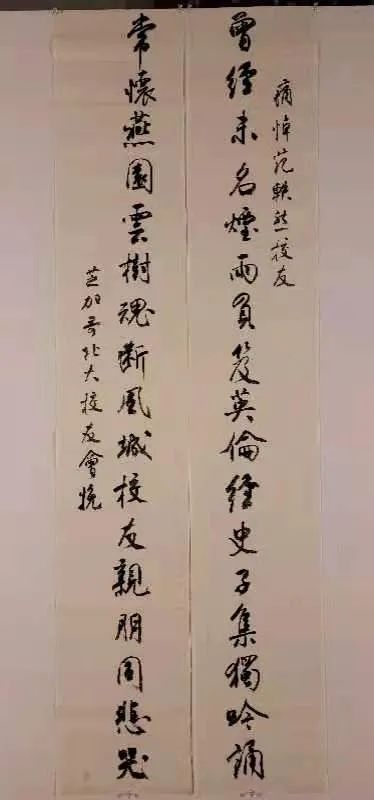 痛悼范軼然校友
曾經未名煙雨負笈英倫經史子集獨吟誦
常懷燕園雲樹魂斷風城校友親朋同悲哭
芝加哥北大校友會挽